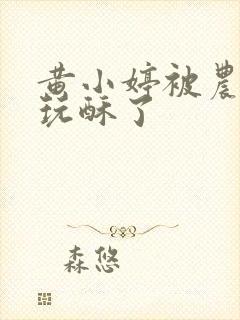 黄小婷被農
玩酥了
森悠